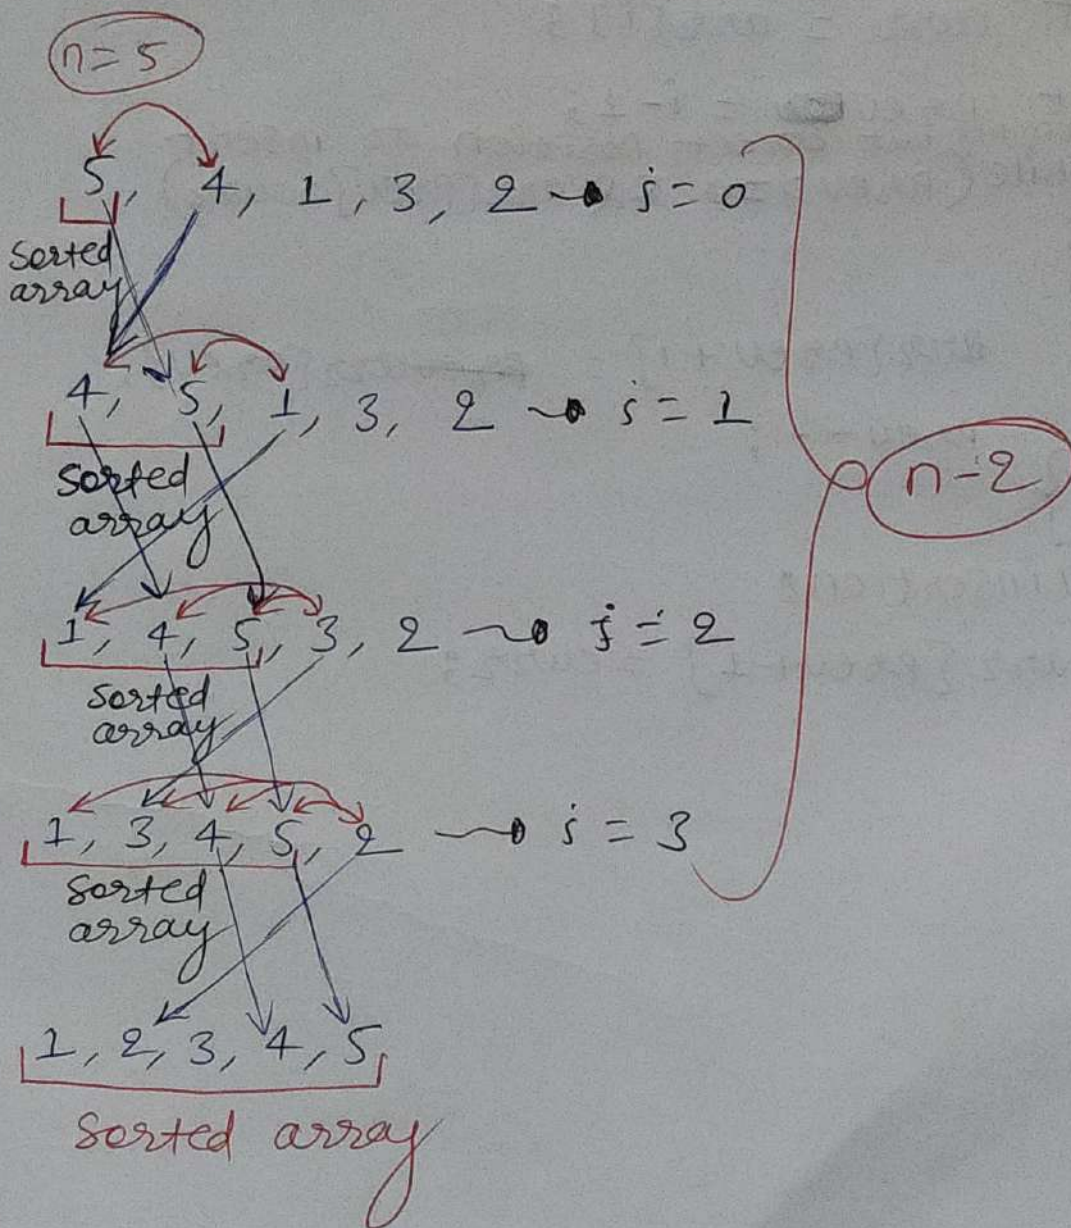 n = 5
5, 4, 1, 3, 2 → i = 0
sorted
array
4, 5, 1, 3, 2 → i = 1
sorted
array
n-2
1, 4, 5, 3, 2 → i = 2
sorted
array
1, 3, 4, 5, 2 → i = 3
sorted
array
1, 2, 3, 4, 5
sorted array